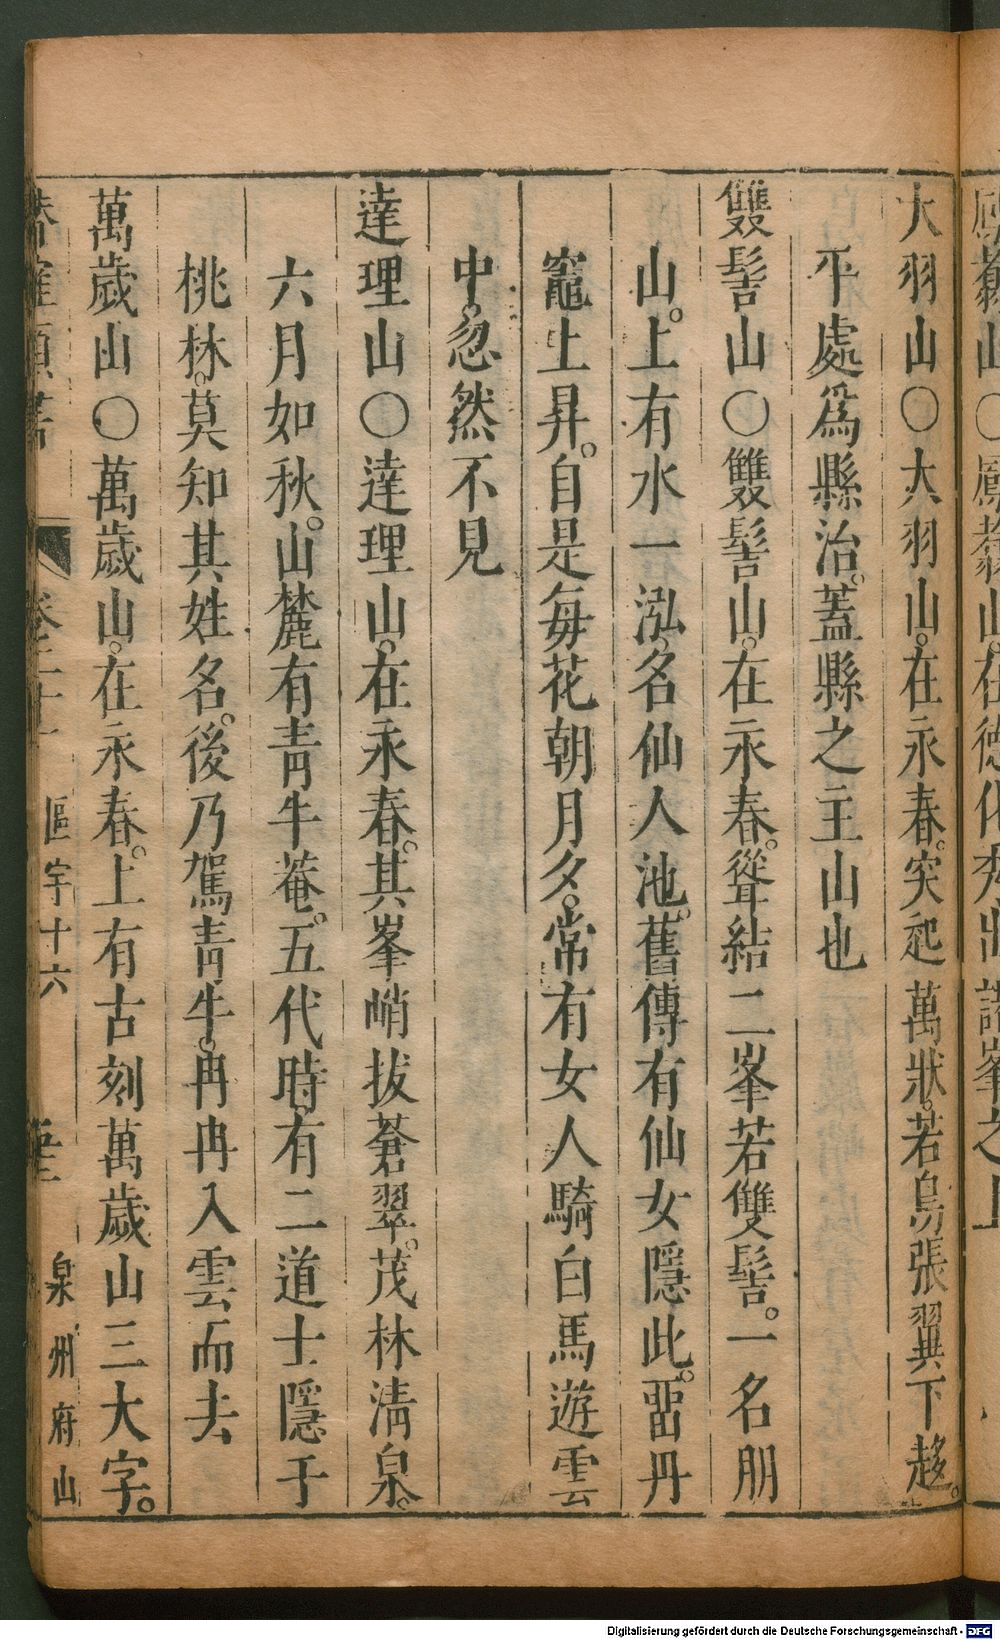 大羽山○大羽山。在永春。突起萬狀。若鳥張翼下趍。
平處爲縣治。蓋縣之主山也
雙髻山○雙髻山。在永春。聳結二峯若雙髻。一名朋
山。上有水一泓。名仙人池。舊傳有仙女隱此。畱丹
竈上昇。自是每花朝月夕。常有女人騎白馬遊雲
中。忽然不見
達理山○達理山。在永春。其峯峭拔蒼翠。茂林淸泉。
六月如秋。山麓有靑牛菴。五代時。有二道士隱于
桃林。莫知其姓名。後乃駕靑牛。冉冉入雲而去
萬歲山○萬歲山。在永春。上有古刻萬歲山三大字。
區宇十六
泉州府山
Digitalisierung gefördert durch die Deutsche Forschungsgemeinschaft - DFG